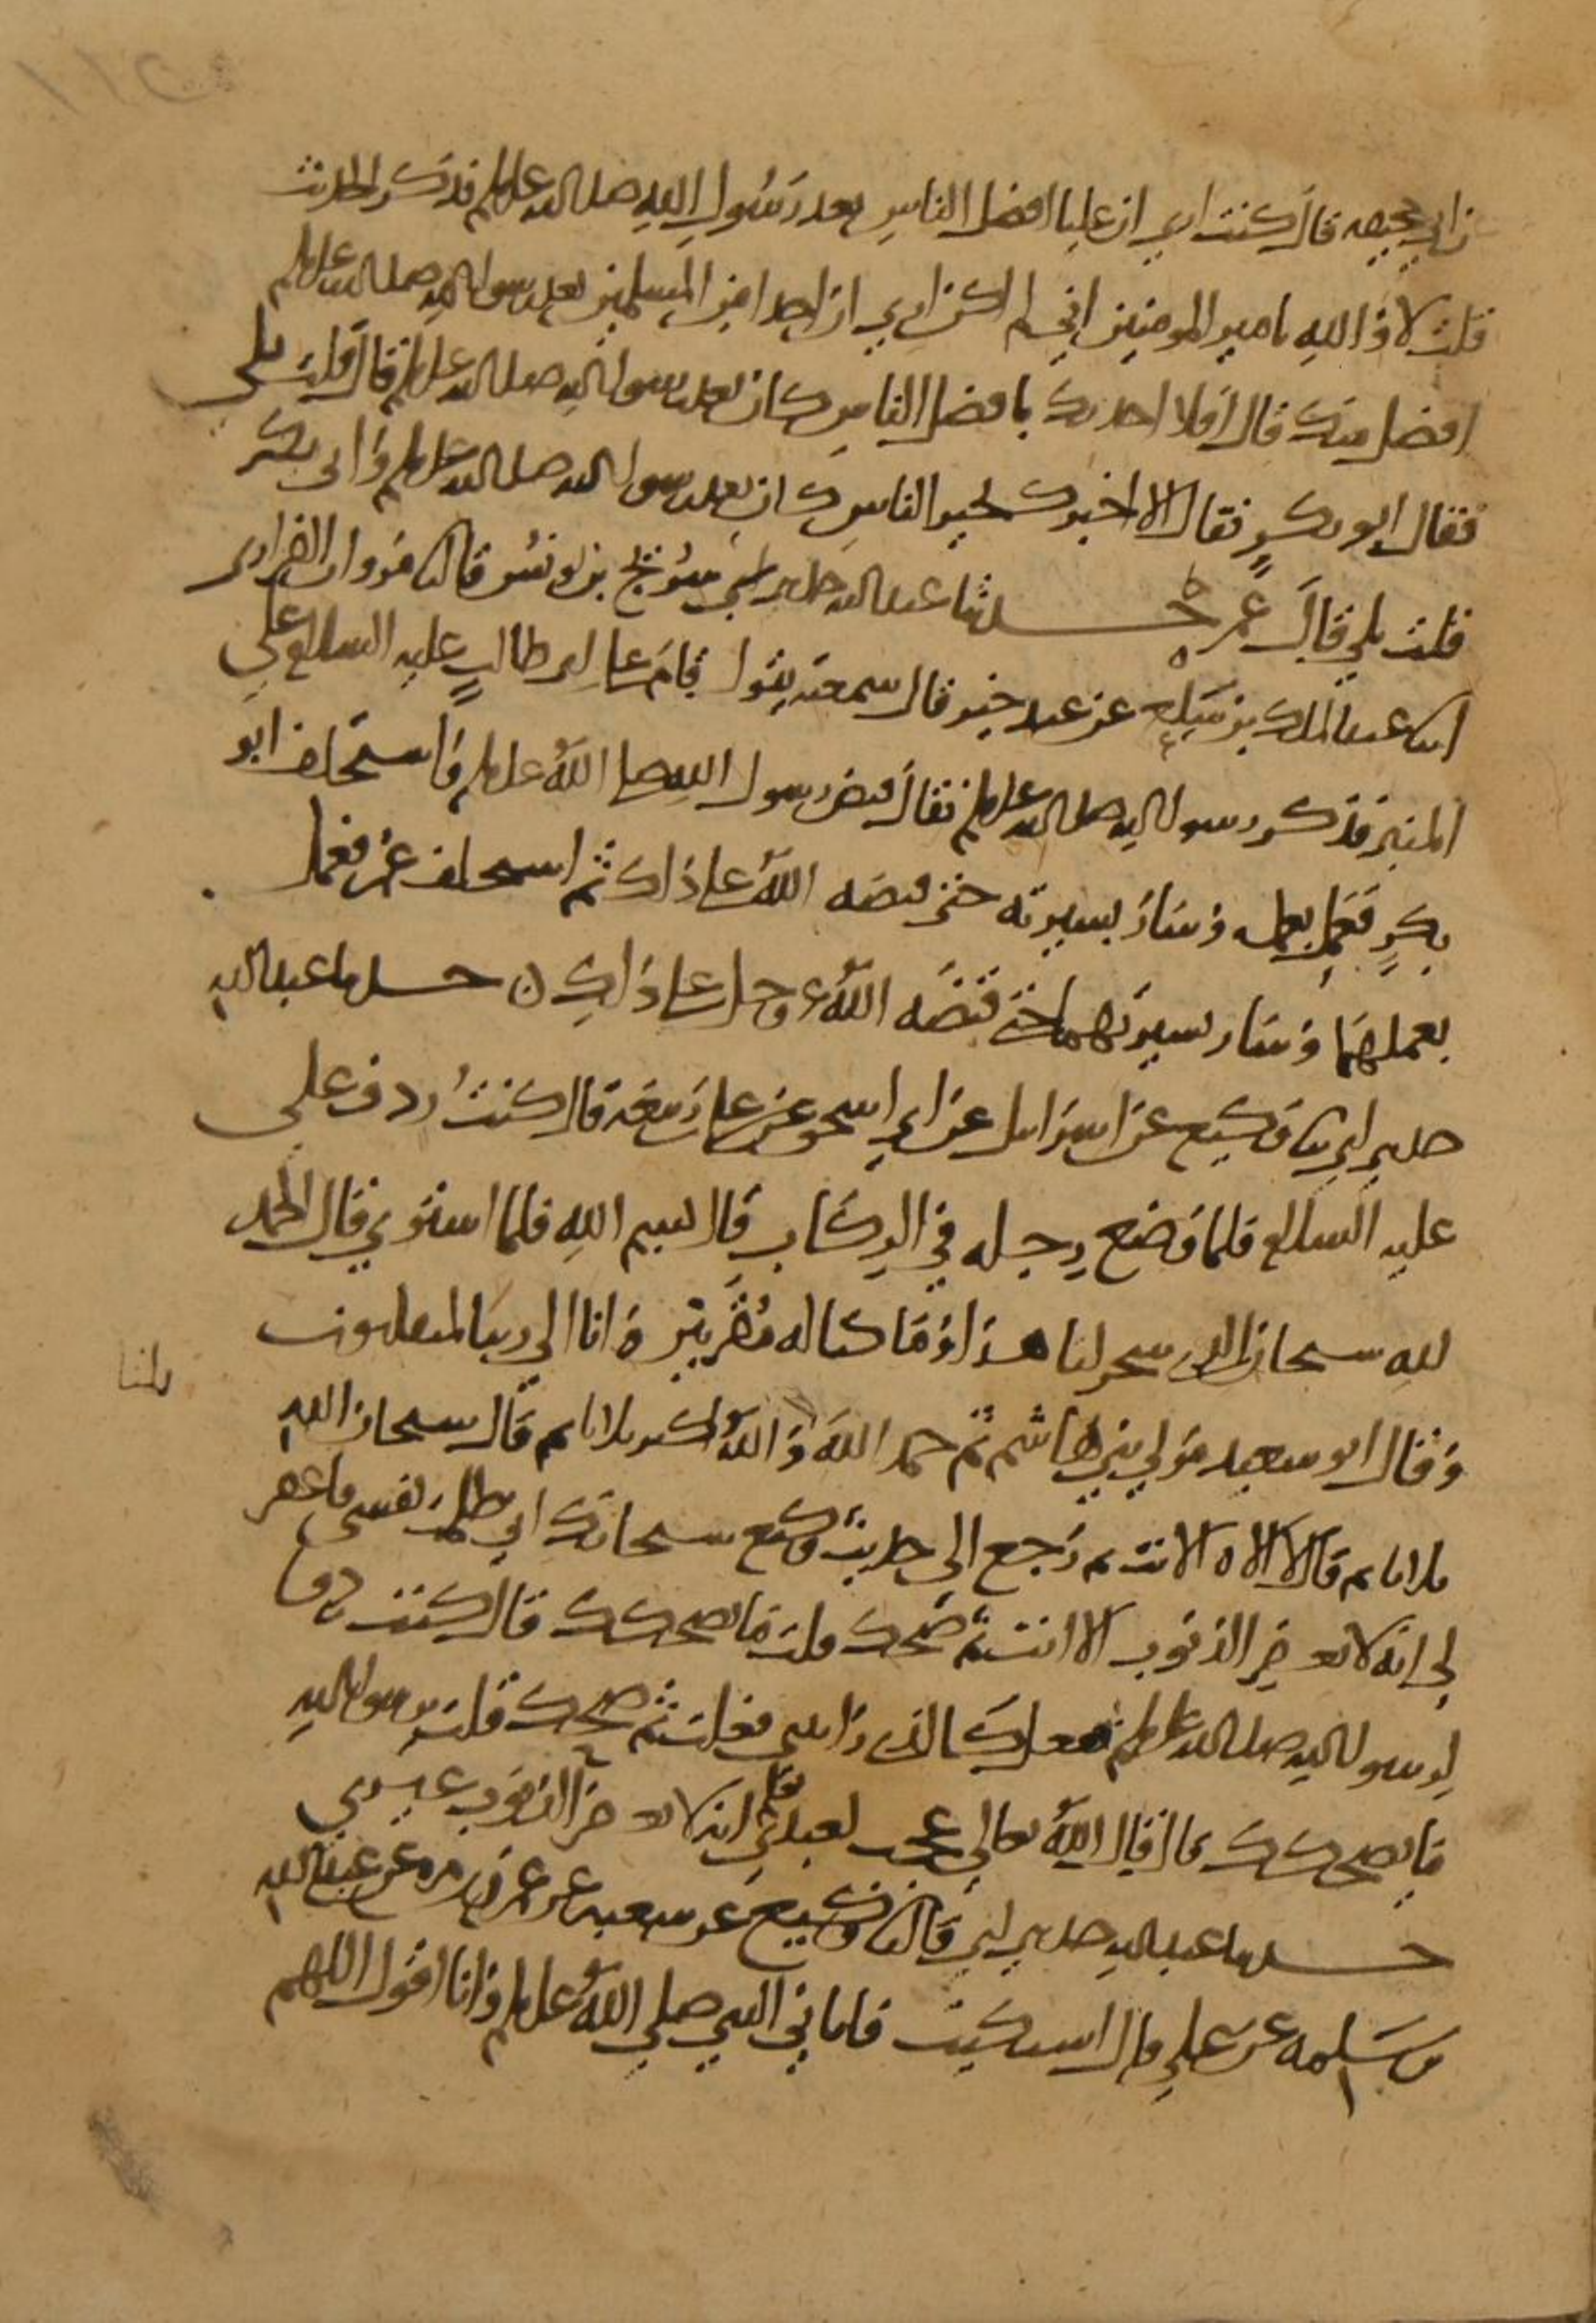 ن ابي جحيفه قال كنت اري ان عليا افضل الناس بعد رسول الله صلى الله عليه وسلم فذكر الحديث
قلت لا والله يامير المومنين اني لم اكن اري ان احدا من المسلمين بعد رسول الله صلى الله عليه وسلم
افضل منك قال افلا احدثك بافضل الناس كان بعد رسول الله صلى الله عليه وسلم قال قلت بلى
فقال ابو بكر فقال الا اخبرك بخير الناس كان بعد رسول الله صلى الله عليه وسلم وابي بكر
قلت بلي قال عمر حدثنا عبد الله حدثني سريج بن يونس قال ثنا مروان الفزاري
انا عبد الملك بن سلع عن عبد خير قال سمعته يقول قام علي بن ابي طالب عليه السلام علي
المنبر فذكر رسول الله صلى الله عليه وسلم فقال قبض رسول الله صلى الله عليه وسلم واستخلف ابو
بكر فعمل بعمله وسار بسيرته حتى قبضه الله على ذلك ثم استخلف عمر فعمل
بعملهما وسار بسيرتهما حتى قبضه الله عز وجل على ذلك حدثنا عبد الله
حدثني ابي ثنا وكيع عن اسرائيل عن ابي اسحق عن علي بن ربيعة قال كنت ردف علي
عليه السلام فلما وضع رجله في الركاب قال بسم الله فلما استوي قال الحمد
لله سبحان الذي سخر لنا هذا وما كنا له مقرنين وانا الي ربنا لمنقلبون
وقال ابو سعيد مولي بني هاشم ثم حمد الله ثلاثا والله اكبر ثلاثا ثم قال سبحان الله
ثلاثا ثم قال لا اله الا انت ثم رجع الى حديث وكيع سبحانك اني ظلمت نفسي فاغفر
لي انه لا يغفر الذنوب الا انت ثم ضحك قلت ما يضحكك قال كنت ردفا
لرسول الله صلى الله عليه وسلم ففعل كالذي راىتني فعلت ثم ضحك قلت يرسول الله
ما يضحكك قال قال الله تعالي عجب لعبدي يعلم انه لا يغفر الذنوب غيري
حدثنا عبد الله حدثني ابي قال ثنا وكيع عن شعبه عن عمرو بن مره عن عبد الله
بن سلمه عن علي قال اشتكيت فاتاني النبي صلي الله عليه وسلم وانا اقول اللهم